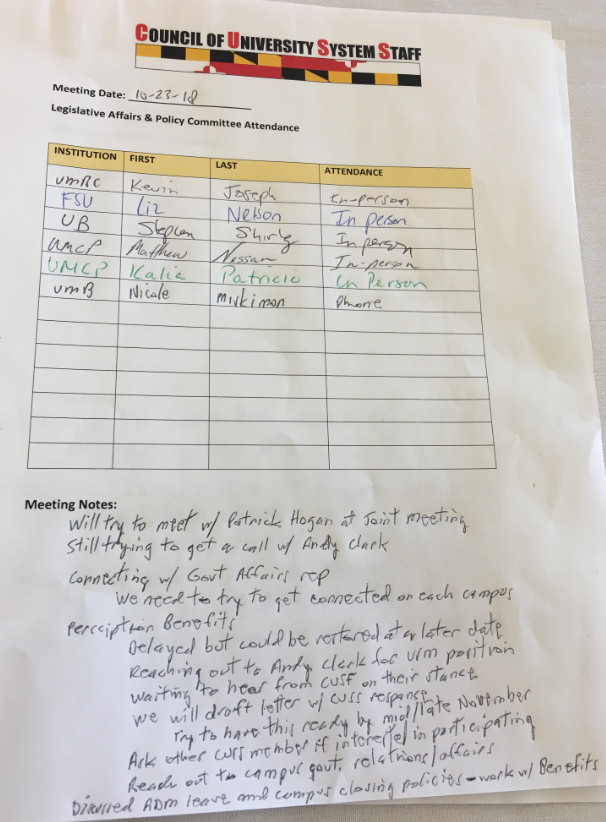 COUNCIL OF UNIVERSITY SYSTEM STAFF
Meeting Date: 10-23-18
Legislative Affairs & Policy Committee Attendance
INSTITUTION FIRST LAST ATTENDANCE
UMBC Kevin Joseph In-person
FSU Liz Nelson In person
UB Stephen Shirley In person
UMCP Matthew Nessan In-person
UMCP Kalia Patricio In Person
UMB Nicole Miskimon Phone
Meeting Notes:
Will try to meet w/ Patrick Hogan at Joint meeting
Still trying to get a call w/ Andy Clark
Connecting w/ Govt Affairs rep
We need to try to get connected on each campus
Perscription Benefits
Delayed but could be restored at a later date
Reaching out to Andy Clark for USM position
Waiting to hear from CUSF on their stance
We will draft letter w/ CUSS response
Try to have this ready by mid/late November
Ask other CUSS member if interested in participating
Reach out to campus govt. relations/affairs
Discussed ADM leave and campus closing policies - work w/ Benefits